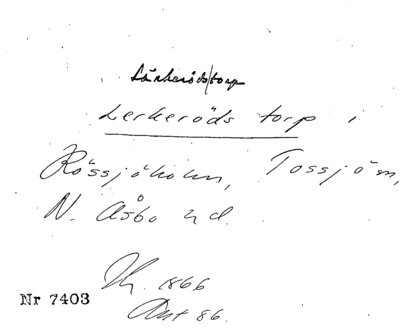 Lärkeröds torp
Lerkeröds torp i
Rössjöholm, Tossjö sn,
N. Åsbo hd.
Th. 1866
Nr 7403
Avt 86.